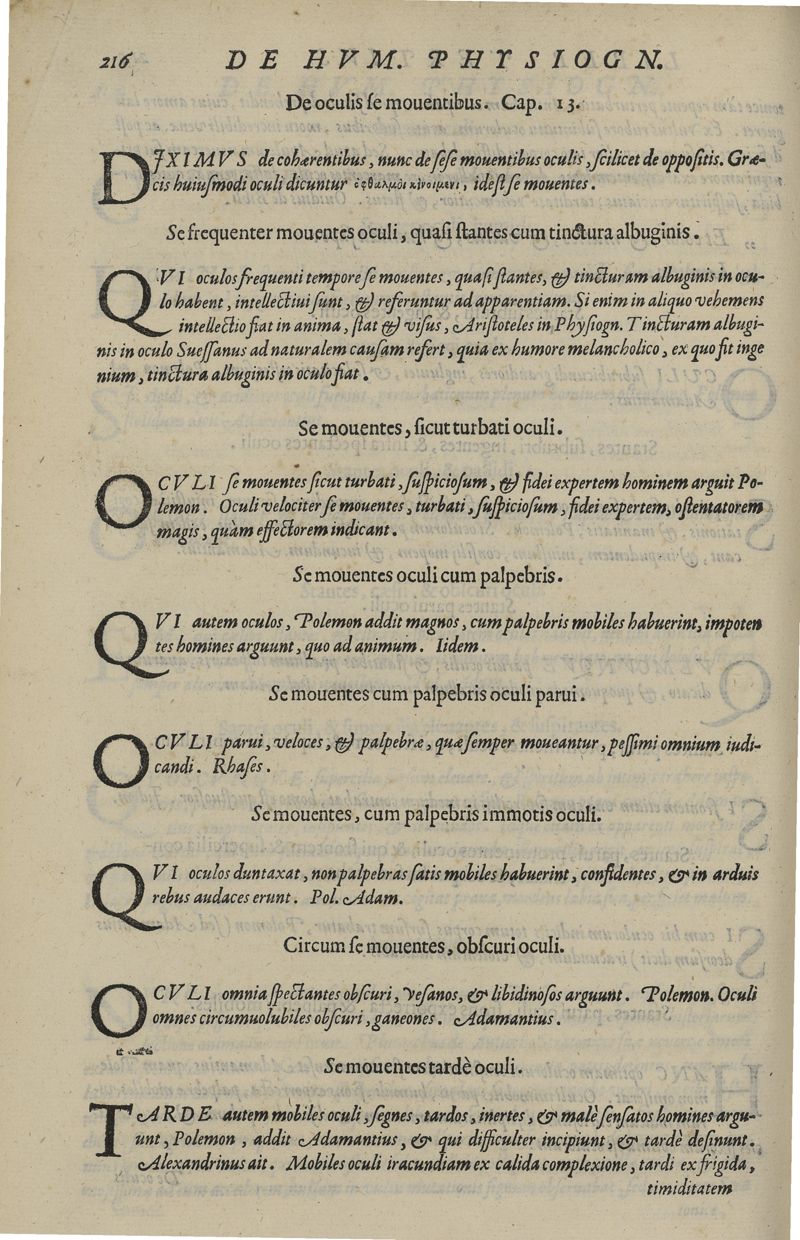 216 DE HVM. PHYSIOGN.
De oculis ſe mouentibus. Cap. 13.
DIXIMVS de cohærentibus, nunc de ſeſe mouentibus oculis, ſcilicet de oppoſitis. Græ-
cis huiuſmodi oculi dicuntur ὀφθαλμὸι κίνοιμενι, ideſt ſe mouentes.
Se frequenter mouentes oculi, quaſi ſtantes cum tinctura albuginis.
QVI oculos frequenti tempore ſe mouentes, quaſi ſtantes, & tincturam albuginis in ocu-
lo habent, intellectiui ſunt, & referuntur ad apparentiam. Si enim in aliquo vehemens
intellectio fiat in anima, ſtat & viſus, Ariſtoteles in Phyſiogn. Tincturam albugi-
nis in oculo Sueſſanus ad naturalem cauſam refert, quia ex humore melancholico, ex quo fit inge
nium, tinctura albuginis in oculo fiat.
Se mouentes, ſicut turbati oculi.
OCVLI ſe mouentes ſicut turbati, ſuſpicioſum, & fidei expertem hominem arguit Po-
lemon. Oculi velociter ſe mouentes, turbati, ſuſpicioſum, fidei expertem, oſtentatorem
magis, quàm effectorem indicant.
Se mouentes oculi cum palpebris.
QVI autem oculos, Polemon addit magnos, cum palpebris mobiles habuerint, impoten
tes homines arguunt, quo ad animum. Iidem.
Se mouentes cum palpebris oculi parui.
OCVLI parui, veloces, & palpebræ, quæ ſemper moueantur, peſſimi omnium iudi-
candi. Rhaſes.
Se mouentes, cum palpebris immotis oculi.
QVI oculos duntaxat, non palpebras ſatis mobiles habuerint, confidentes, & in arduis
rebus audaces erunt. Pol. Adam.
Circum ſe mouentes, obſcuri oculi.
OCVLI omnia ſpectantes obſcuri, veſanos, & libidinoſos arguunt. Polemon. Oculi
omnes circumuolubiles obſcuri, ganeones. Adamantius.
Se mouentes tardè oculi.
TARDE autem mobiles oculi, ſegnes, tardos, inertes, & malè ſenſatos homines argu-
unt, Polemon, addit Adamantius, & qui difficulter incipiunt, & tardè deſinunt.
Alexandrinus ait. Mobiles oculi iracundiam ex calida complexione, tardi ex frigida,
timiditatem